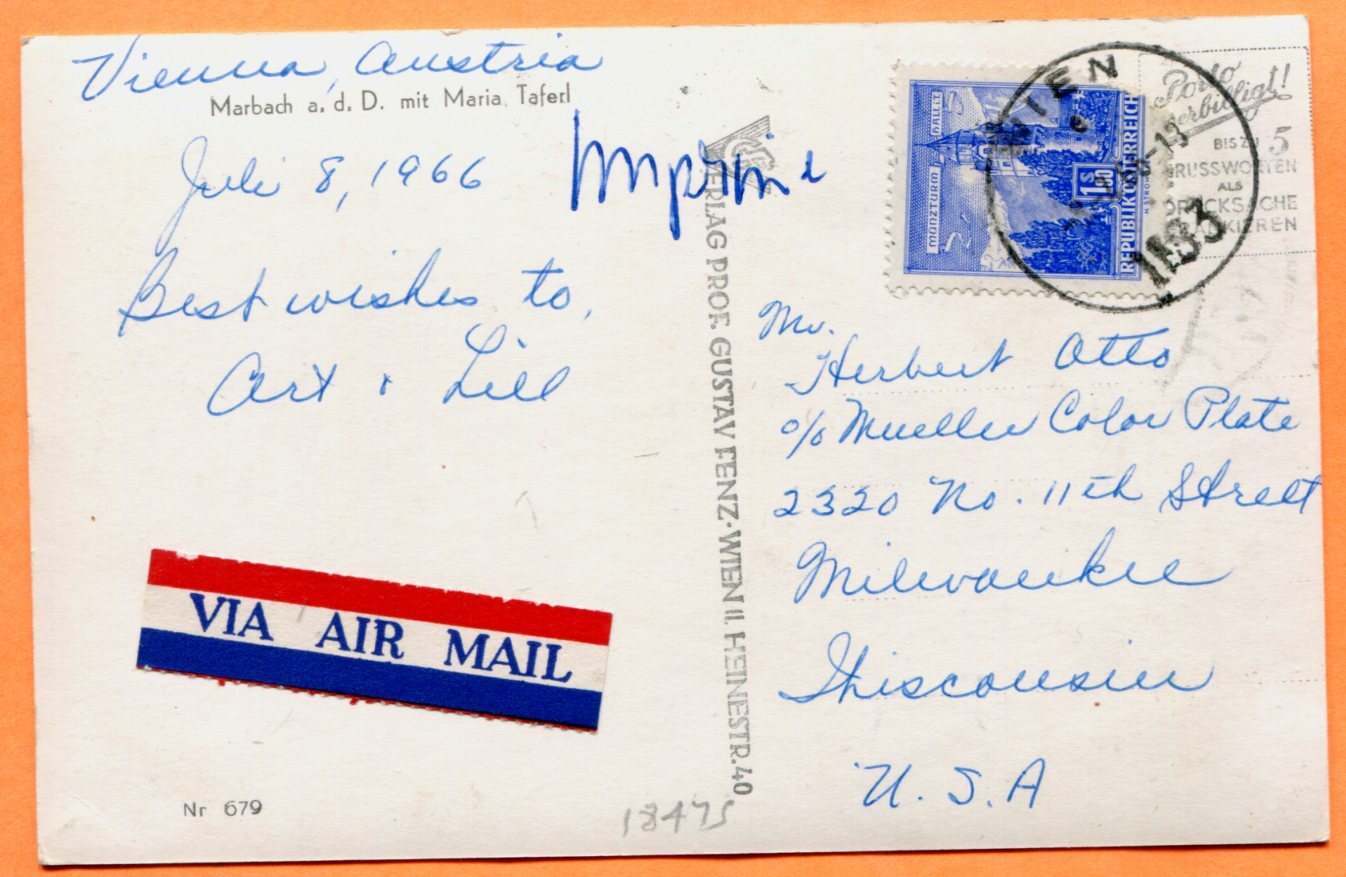 Vienna, Austria
Marbach a. d. D. mit Maria Taferl
Juli 8, 1966
Best wishes to,
Art & Lill
VIA AIR MAIL
Nr 679
18475
VERLAG PROF. GUSTAV FENZ · WIEN II, HEINESTR. 40
MÜNZTURM HALL i.T.
1.80 S
REPUBLIK ÖSTERREICH
WIEN
Porto
verbilligt!
BIS ZU 5
GRUSSWORTEN
ALS
DRUCKSACHE
FRANKIEREN
Mr.
Herbert Otto
c/o Mueller Color Plate
2320 No. 11th Street
Milwaukee
Wisconsin
U. S. A